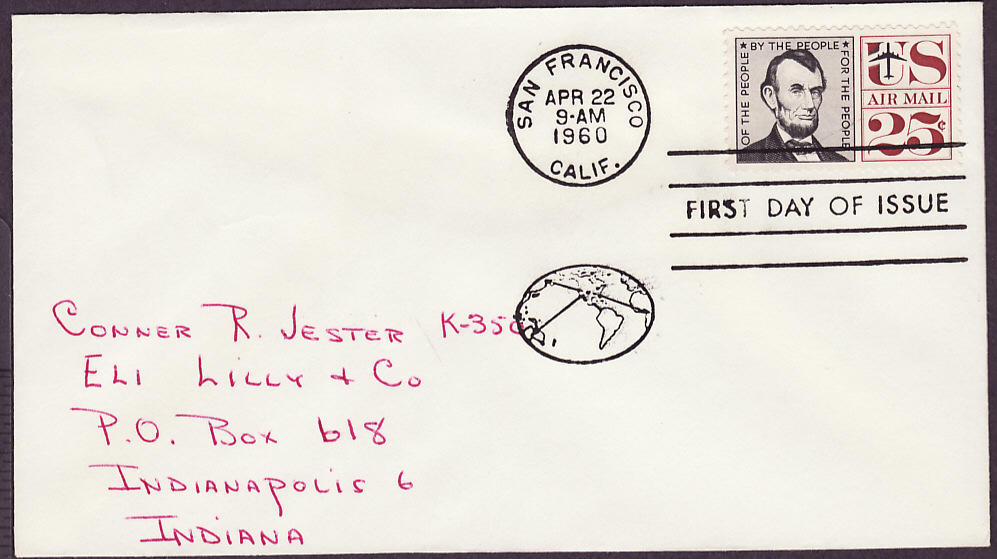 SAN FRANCISCO
APR 22
9-AM
1960
CALIF.
OF THE PEOPLE ★ BY THE PEOPLE ★ FOR THE PEOPLE
US
AIR MAIL
25¢
FIRST DAY OF ISSUE
CONNER R. JESTER K-350
ELI LILLY + CO
P.O. BOX 618
INDIANAPOLIS 6
INDIANA